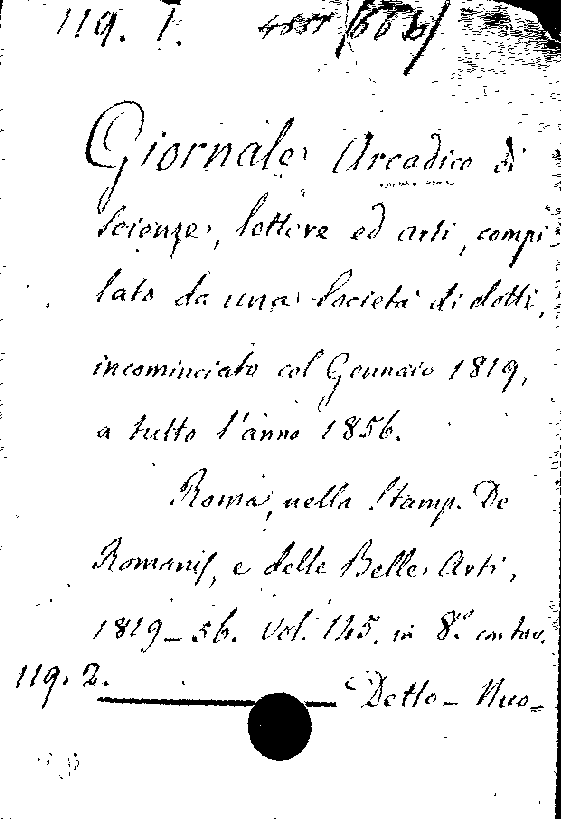 119. 1.
Giornale Arcadico di
scienze, lettere ed arti, compi
lato da una Società di dotti,
incominciato col Gennaio 1819,
a tutto l'anno 1856.
Roma, nella Stamp. De
Romanis, e delle Belle Arti,
1819_56. Vol. 145. in 8.º con tav.
119. 2. Detto_ Nuo=